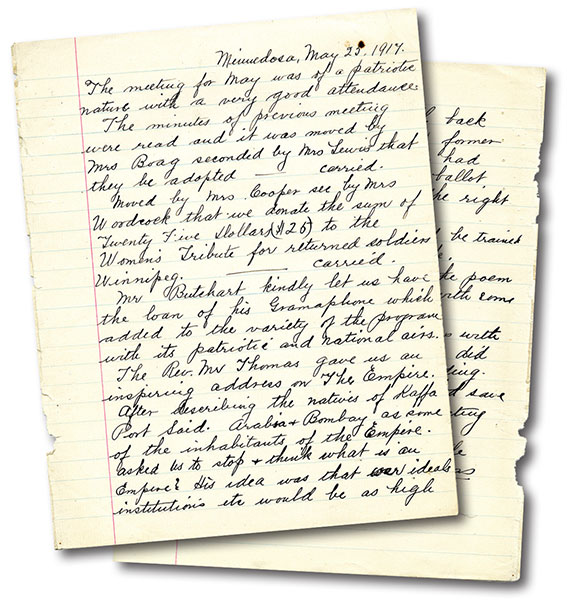 Minnedosa, May 25, 1917.
The meeting for May was of a patriotic
nature with a very good attendance.
The minutes of previous meeting
were read and it was moved by
Mrs Boag seconded by Mrs Lewis that
they be adopted — carried.
Moved by Mrs. Cooper sec by Mrs
Woodcock that we donate the sum of
Twenty Five Dollars ($25) to the
Women's Tribute for returned soldiers
Winnipeg. — carried.
Mr Butchart kindly let us have
the loan of his Gramaphone which
added to the variety of the program
with its patriotic and national airs.
The Rev. Mr Thomas gave us an
inspiring address on The Empire.
After describing the natives of Kaffa
Port Said. Arabia + Bombay as some
of the inhabitants of the Empire.
asked us to stop + think what is an
Empire? His idea was that our ideals
institutions etc would be as high
back
former
had
ballot
the right
be trained
the poem
with some
with
did
save